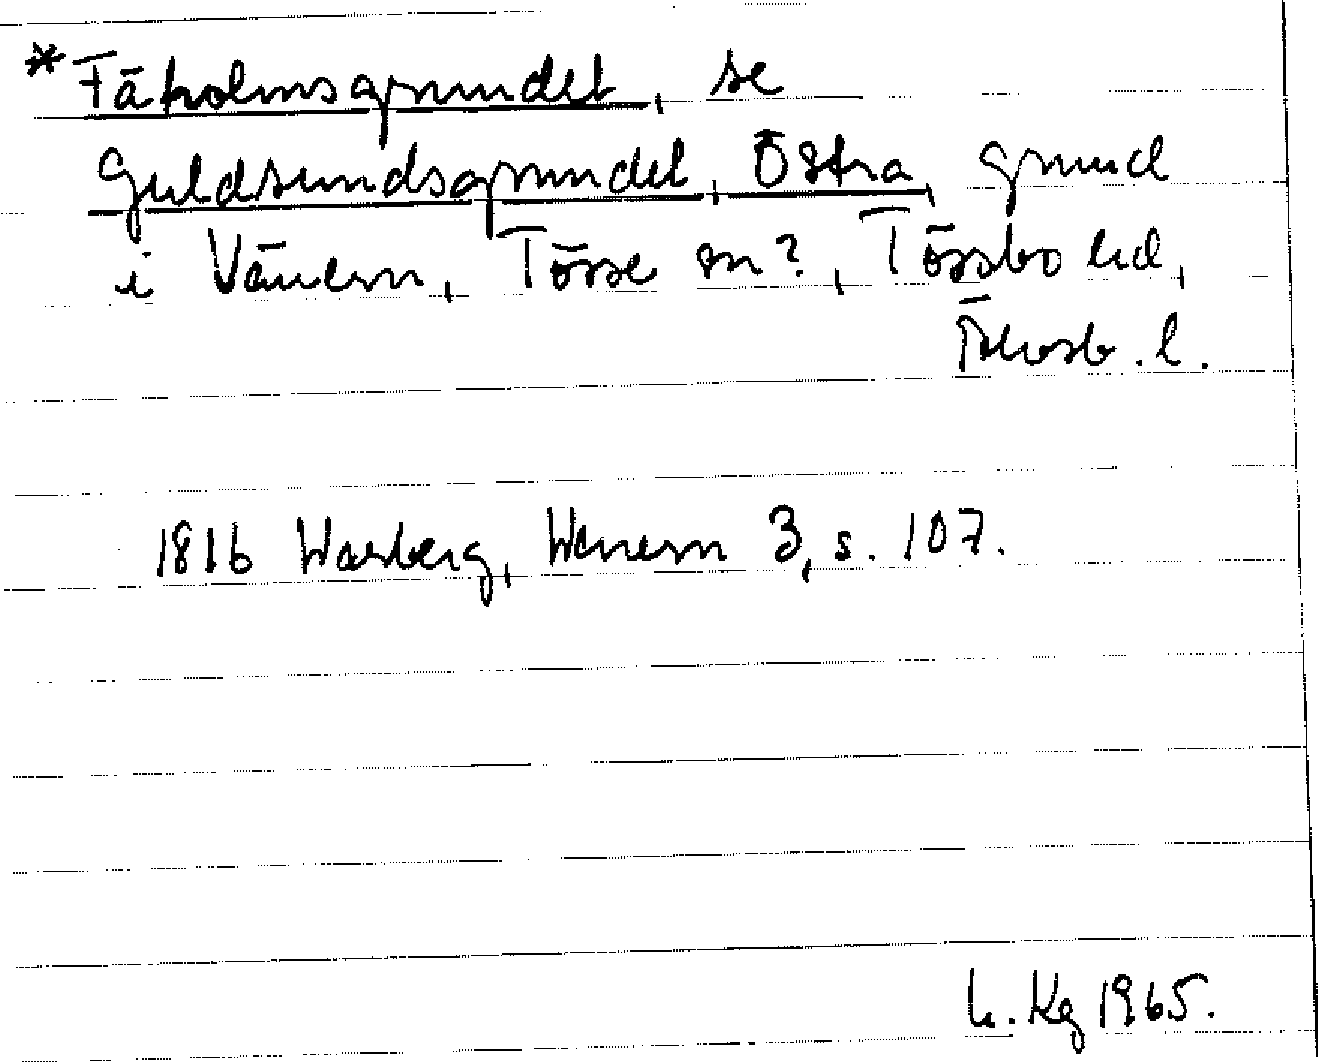 *Fäholmsgrundet, se
Guldsundsgrundet, Östra, grund
i Vänern, Tösse sn?, Tössbo hd,
Älvsb. l.
1816 Warberg, Wenern 3, s. 107.
Kg 1965.